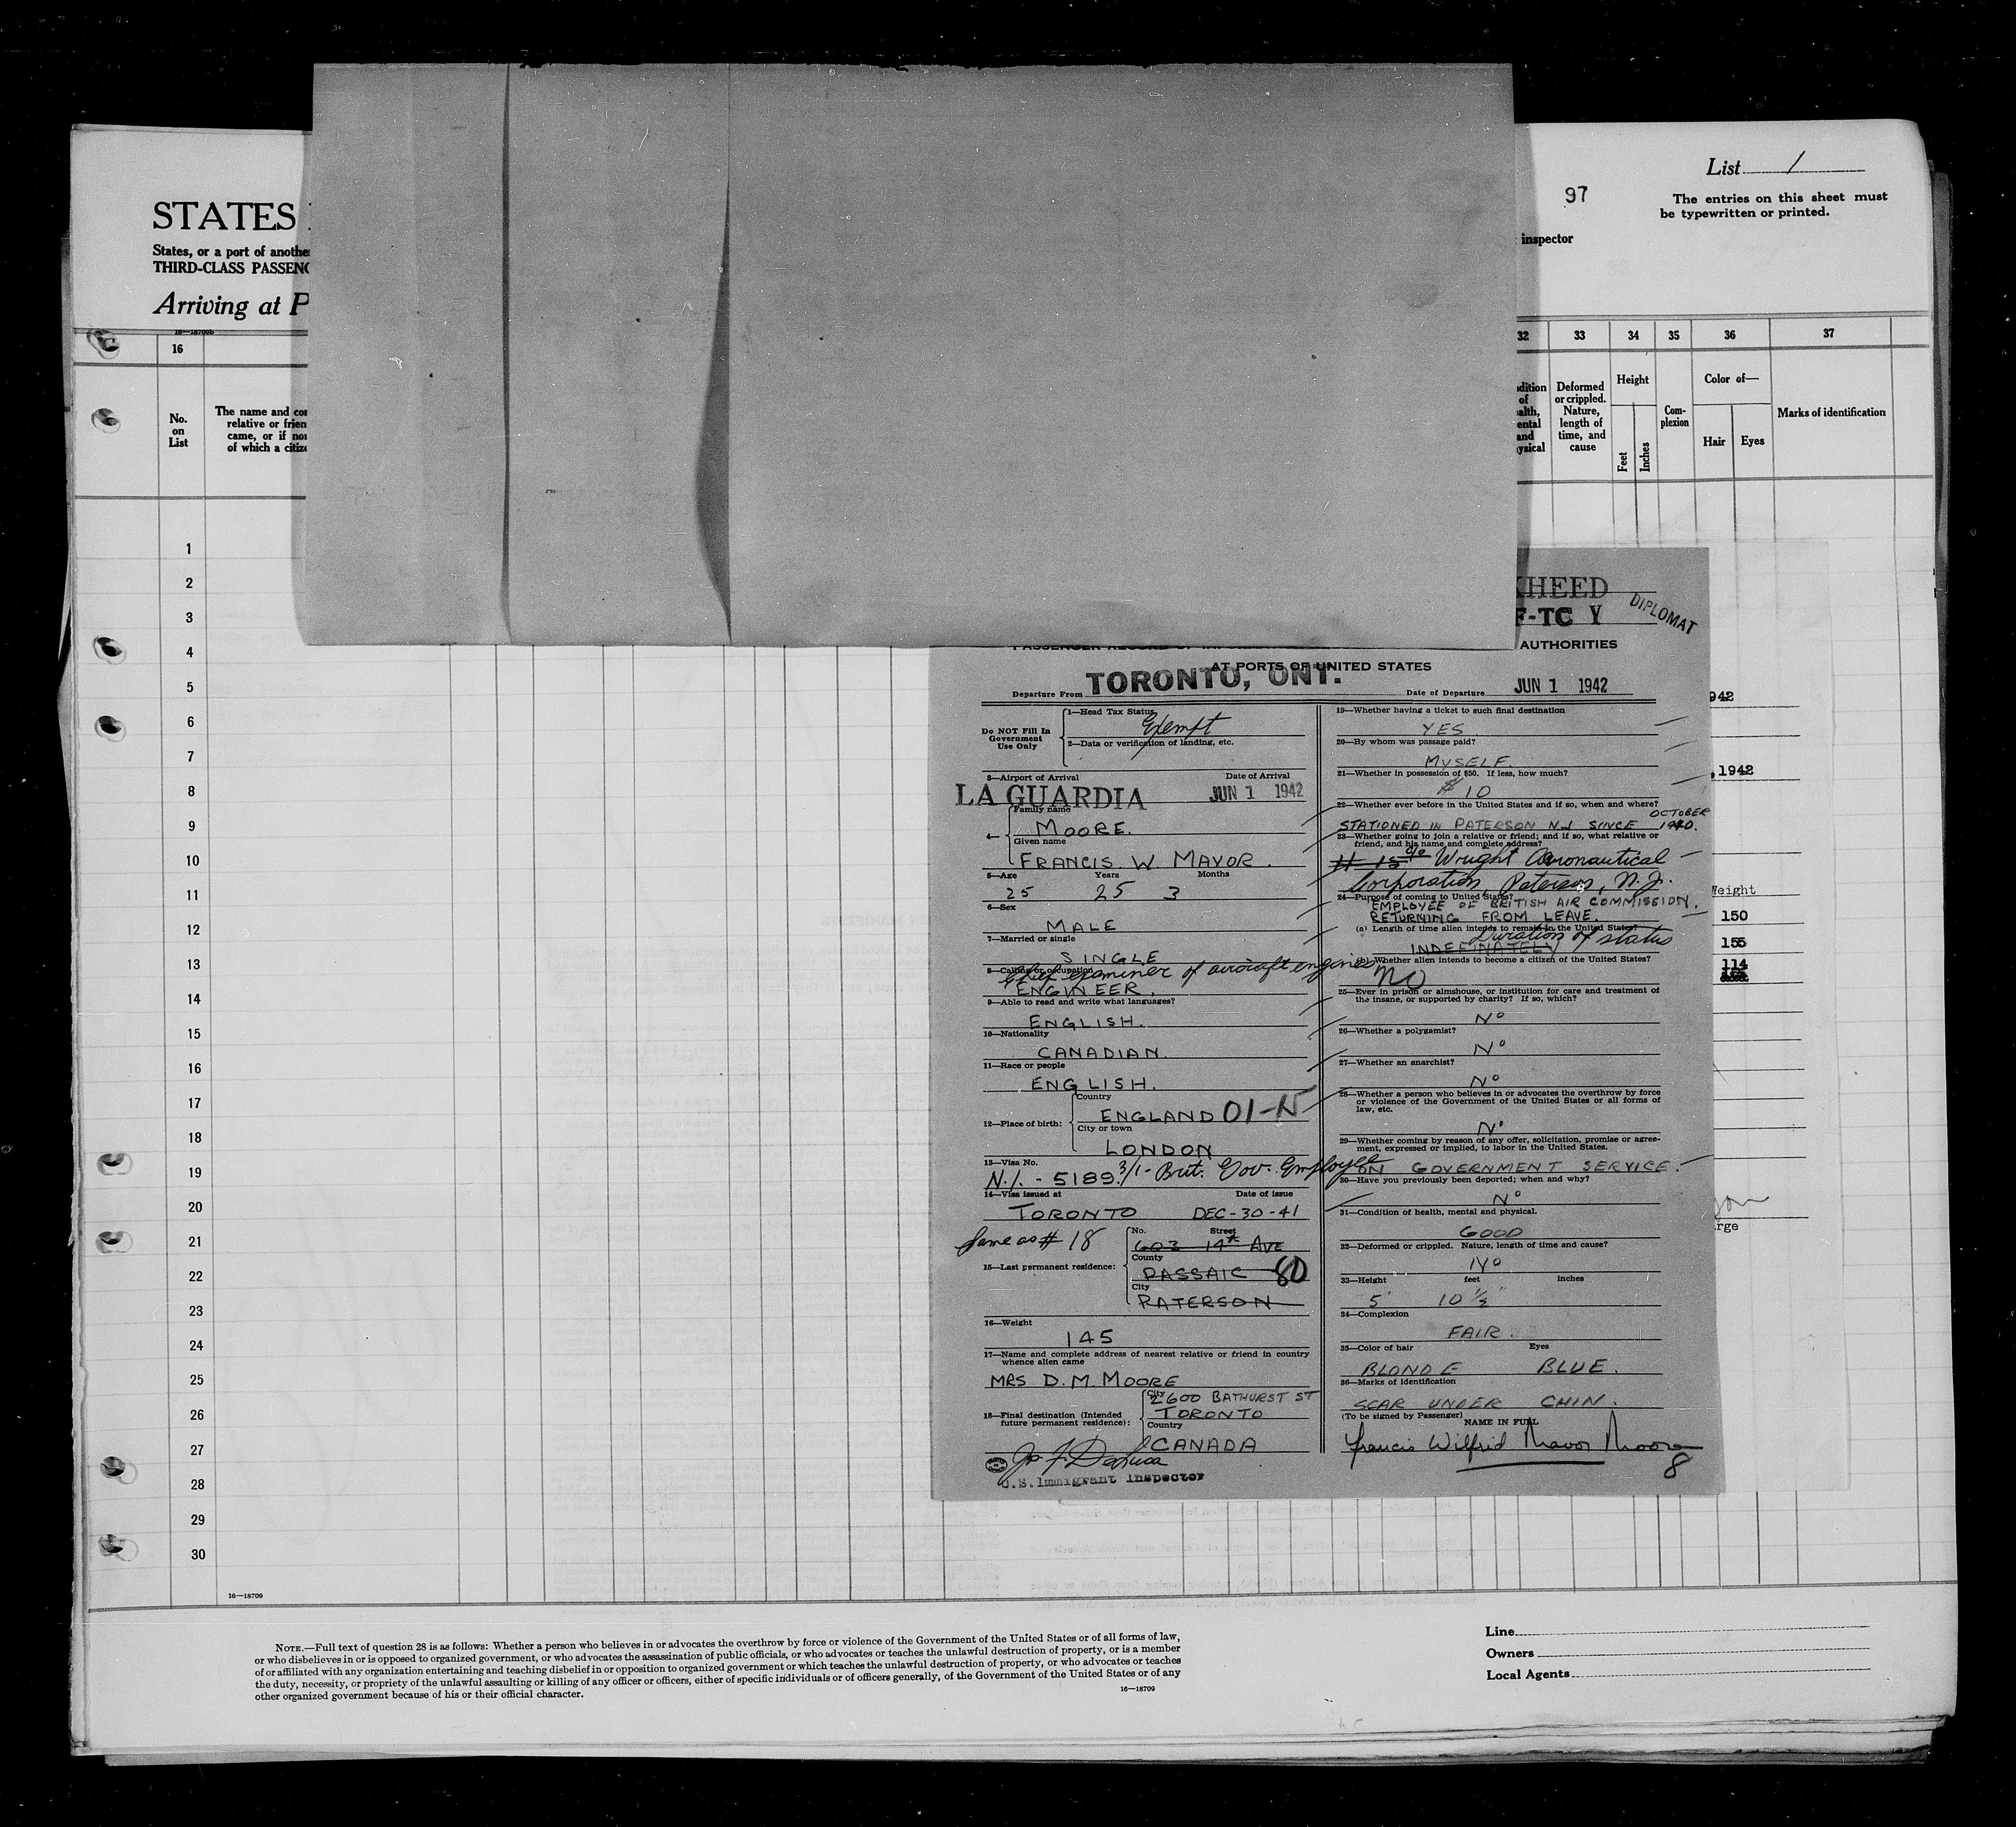 List 1
97
The entries on this sheet must
be typewritten or printed.
STATES
States, or a port of anothe
THIRD-CLASS PASSENG
Arriving at P
inspector
16—18709b
16
32 33 34 35 36 37
No.
on
List
The name and co
relative or frien
came, or if no
of which a citiz
dition
of
alth,
ental
and
ysical
Deformed
or crippled.
Nature,
length of
time, and
cause
Height
Feet
Inches
Com-
plexion
Color of—
Hair Eyes
Marks of identification
1
2
3
4
5
6
7
8
9
10
11
12
13
14
15
16
17
18
19
20
21
22
23
24
25
26
27
28
29
30
KHEED
F-TC Y
DIPLOMAT
AUTHORITIES
AT PORTS OF UNITED STATES
Departure From TORONTO, ONT. Date of Departure JUN 1 1942
Do NOT Fill In
Government
Use Only
1—Head Tax Status
Exempt
2—Data or verification of landing, etc.
3—Airport of Arrival Date of Arrival
LA GUARDIA JUN 1 1942
4—
Family name
MOORE.
Given name
FRANCIS W MAVOR.
5—Age Years Months
25 25 3
6—Sex
MALE
7—Married or single
SINGLE
8—Calling or occupation
Chief examiner of aircraft engines
ENGINEER.
9—Able to read and write what languages?
ENGLISH.
10—Nationality
CANADIAN.
11—Race or people
ENGLISH.
12—Place of birth:
Country
ENGLAND 01-N
City or town
LONDON
13—Visa No.
N.I. - 5189 3/1- Brit. Gov. Employee
14—Visa issued at Date of issue
TORONTO DEC-30-41
Same as # 18
15—Last permanent residence:
No. Street
603 14th AVE
County
PASSAIC 80
City
PATERSON
16—Weight
145
17—Name and complete address of nearest relative or friend in country
whence alien came
MRS D.M. MOORE
18—Final destination (Intended
future permanent residence):
City
2600 BATHURST ST
TORONTO
Country
CANADA
U.S. Immigrant Inspector
19—Whether having a ticket to such final destination
YES
20—By whom was passage paid?
MYSELF.
21—Whether in possession of $50. If less, how much?
$10
22—Whether ever before in the United States and if so, when and where?
OCTOBER
STATIONED IN PATERSON N.J SINCE 1940.
23—Whether going to join a relative or friend; and if so, what relative or
friend, and his name and complete address?
# 15 c/o Wright Aeronautical
Corporation, Paterson, N.J.
24—Purpose of coming to United States?
EMPLOYEE OF BRITISH AIR COMMISSION.
RETURNING FROM LEAVE.
(a) Length of time alien intends to remain in the United States?
Duration of status
INDEFINATELY
(b) Whether alien intends to become a citizen of the United States?
NO
25—Ever in prison or almshouse, or institution for care and treatment of
the insane, or supported by charity? If so, which?
No
26—Whether a polygamist?
No
27—Whether an anarchist?
No
28—Whether a person who believes in or advocates the overthrow by force
or violence of the Government of the United States or all forms of
law, etc.
No
29—Whether coming by reason of any offer, solicitation, promise or agree-
ment, expressed or implied, to labor in the United States.
ON GOVERNMENT SERVICE.
30—Have you previously been deported; when and why?
No
31—Condition of health, mental and physical.
GOOD
32—Deformed or crippled. Nature, length of time and cause?
No
33—Height feet inches
5' 10 1/2"
34—Complexion
FAIR.
35—Color of hair Eyes
BLONDE BLUE.
36—Marks of identification
SCAR UNDER CHIN.
(To be signed by Passenger)
NAME IN FULL
Francis Wilfrid Mavor Moore
8
942
, 1942
Weight
150
155
114
rge
16—18709
NOTE.—Full text of question 28 is as follows: Whether a person who believes in or advocates the overthrow by force or violence of the Government of the United States or of all forms of law,
or who disbelieves in or is opposed to organized government, or who advocates the assassination of public officials, or who advocates or teaches the unlawful destruction of property, or is a member
of or affiliated with any organization entertaining and teaching disbelief in or opposition to organized government or which teaches the unlawful destruction of property, or who advocates or teaches
the duty, necessity, or propriety of the unlawful assaulting or killing of any officer or officers, either of specific individuals or of officers generally, of the Government of the United States or of any
other organized government because of his or their official character.
16—18709
Line
Owners
Local Agents